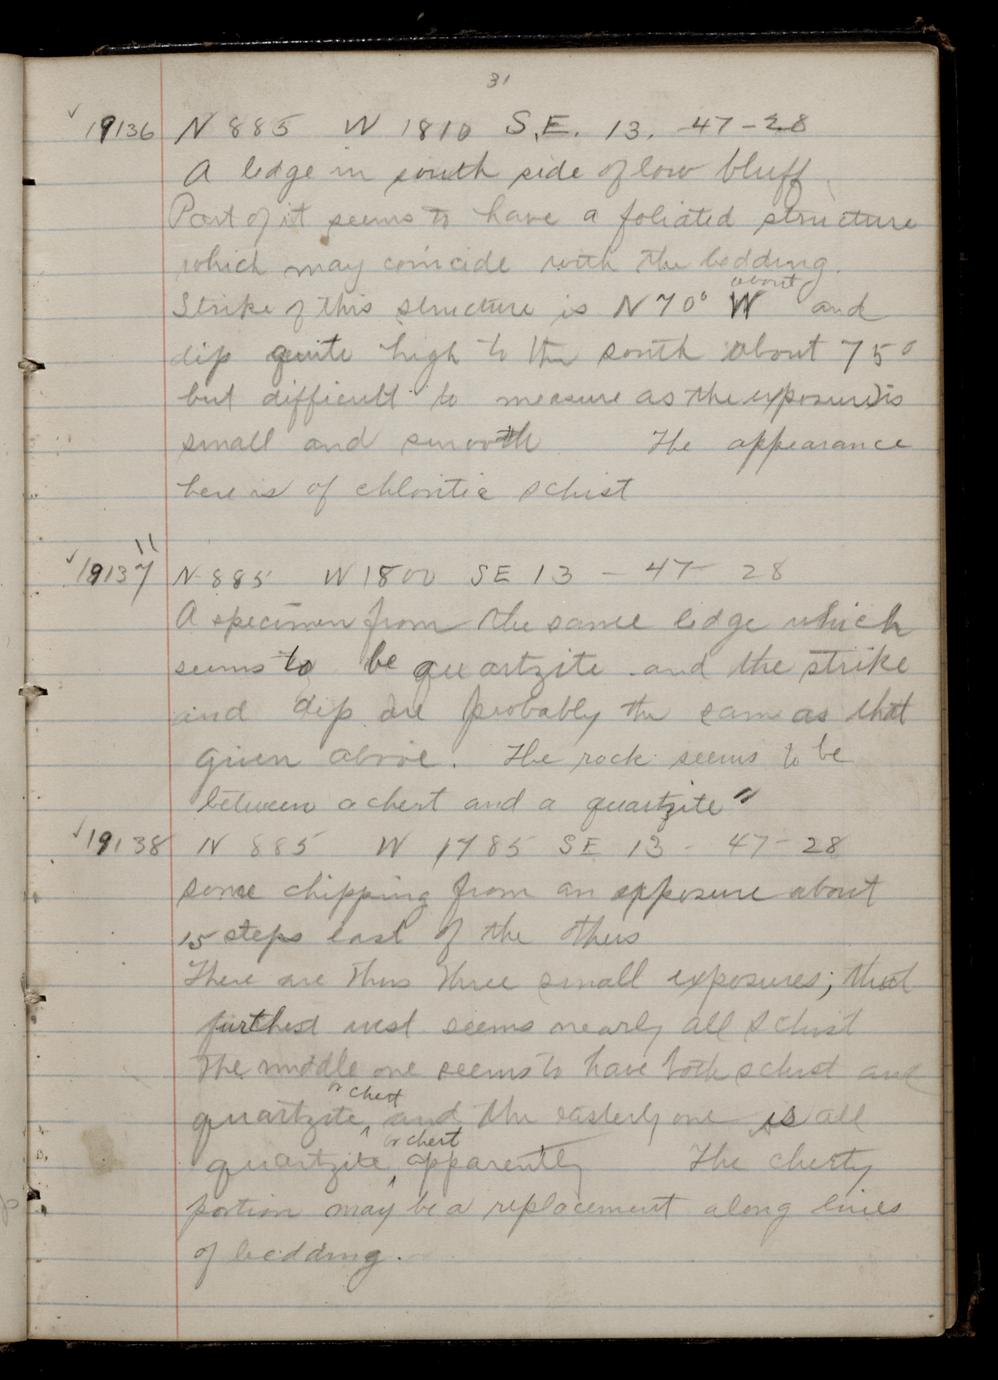 31
✓ 19136 N 885 W 1810 S.E. 13. 47-28
A ledge in south side of low bluff.
Part of it seems to have a foliated structure
which may coincide with the bedding.
about
Strike of this structure is N 70° W and
dip quite high to the south about 75°
but difficult to measure as the exposure is
small and smooth The appearance
here is of chloritic schist
"
✓ 19137 N 885 W 1800 SE 13 - 47- 28
A specimen from the same ledge which
seems to be quartzite and the strike
and dip are probably the same as that
given above. The rock seems to be
between a chert and a quartzite "
✓ 19138 N 885 W 1785 SE 13 - 47-28
some chipping from an exposure about
15 steps east of the others
There are thus three small exposures; that
furthest west seems nearly all schist
The middle one seems to have both schist and
or chert
quartzite ^ and the easterly one is all
or chert
quartzite ^ apparently The cherty
portion may be a replacement along lines
of bedding.